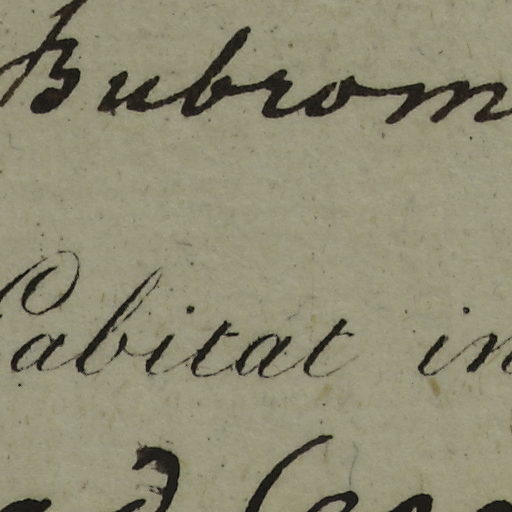 Bubrom
Habitat in
ad